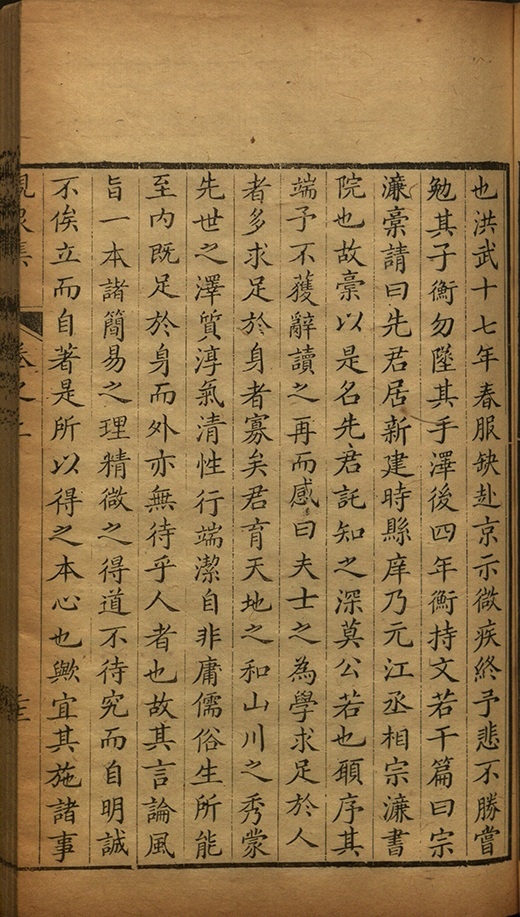 也洪武十七年春服缺赴京示微疾終予悲不勝嘗
勉其子衡勿墜其手澤後四年衡持文若干篇曰宗
濂稾請曰先君居新建時縣庠乃元江丞相宗濂書
院也故稾以是名先君託知之深莫公若也願序其
端予不獲辭讀之再而感曰夫士之為學求足於人
者多求足於身者寡矣君育天地之和山川之秀蒙
先世之澤質淳氣清性行端潔自非庸儒俗生所能
至內既足於身而外亦無待乎人者也故其言論風
旨一本諸簡易之理精微之得道不待究而自明誠
不俟立而自著是所以得之本心也歟宜其施諸事
集
卷之